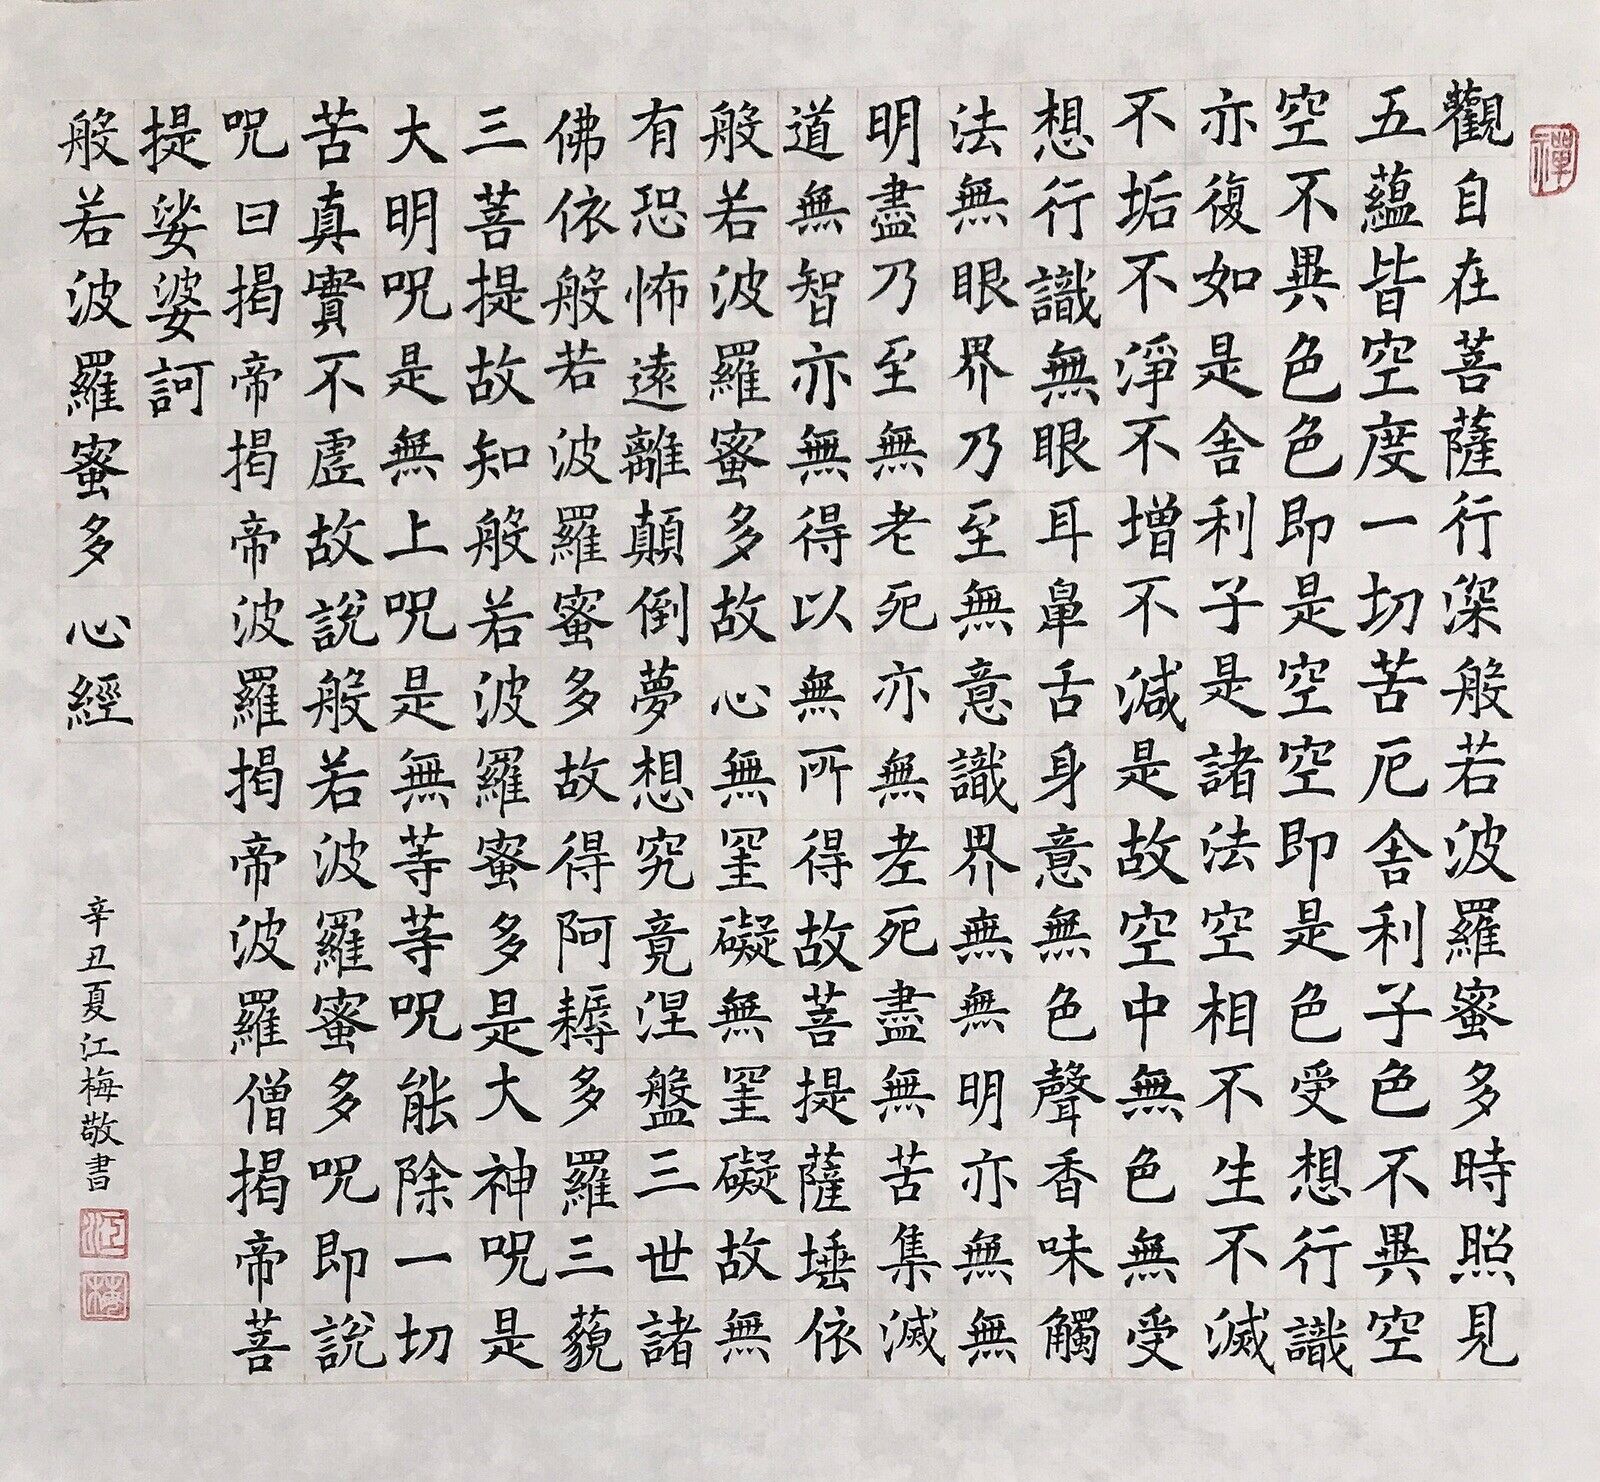 禪
觀自在菩薩行深般若波羅蜜多時照見
五蘊皆空度一切苦厄舍利子色不異空
空不異色色即是空空即是色受想行識
亦復如是舍利子是諸法空相不生不滅
不垢不淨不增不減是故空中無色無受
想行識無眼耳鼻舌身意無色聲香味觸
法無眼界乃至無意識界無無明亦無無
明盡乃至無老死亦無老死盡無苦集滅
道無智亦無得以無所得故菩提薩埵依
般若波羅蜜多故心無罣礙無罣礙故無
有恐怖遠離顛倒夢想究竟涅盤三世諸
佛依般若波羅蜜多故得阿耨多羅三藐
三菩提故知般若波羅蜜多是大神咒是
大明咒是無上咒是無等等咒能除一切
苦真實不虛故說般若波羅蜜多咒即說
咒曰揭帝揭帝波羅揭帝波羅僧揭帝菩
提娑婆訶
般若波羅蜜多心經
辛丑夏江梅敬書
江
梅